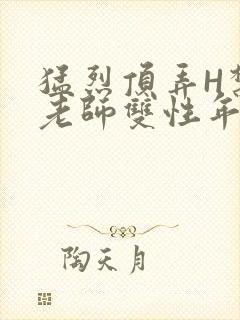 猛烈頂弄H
老師雙性年
陶天月